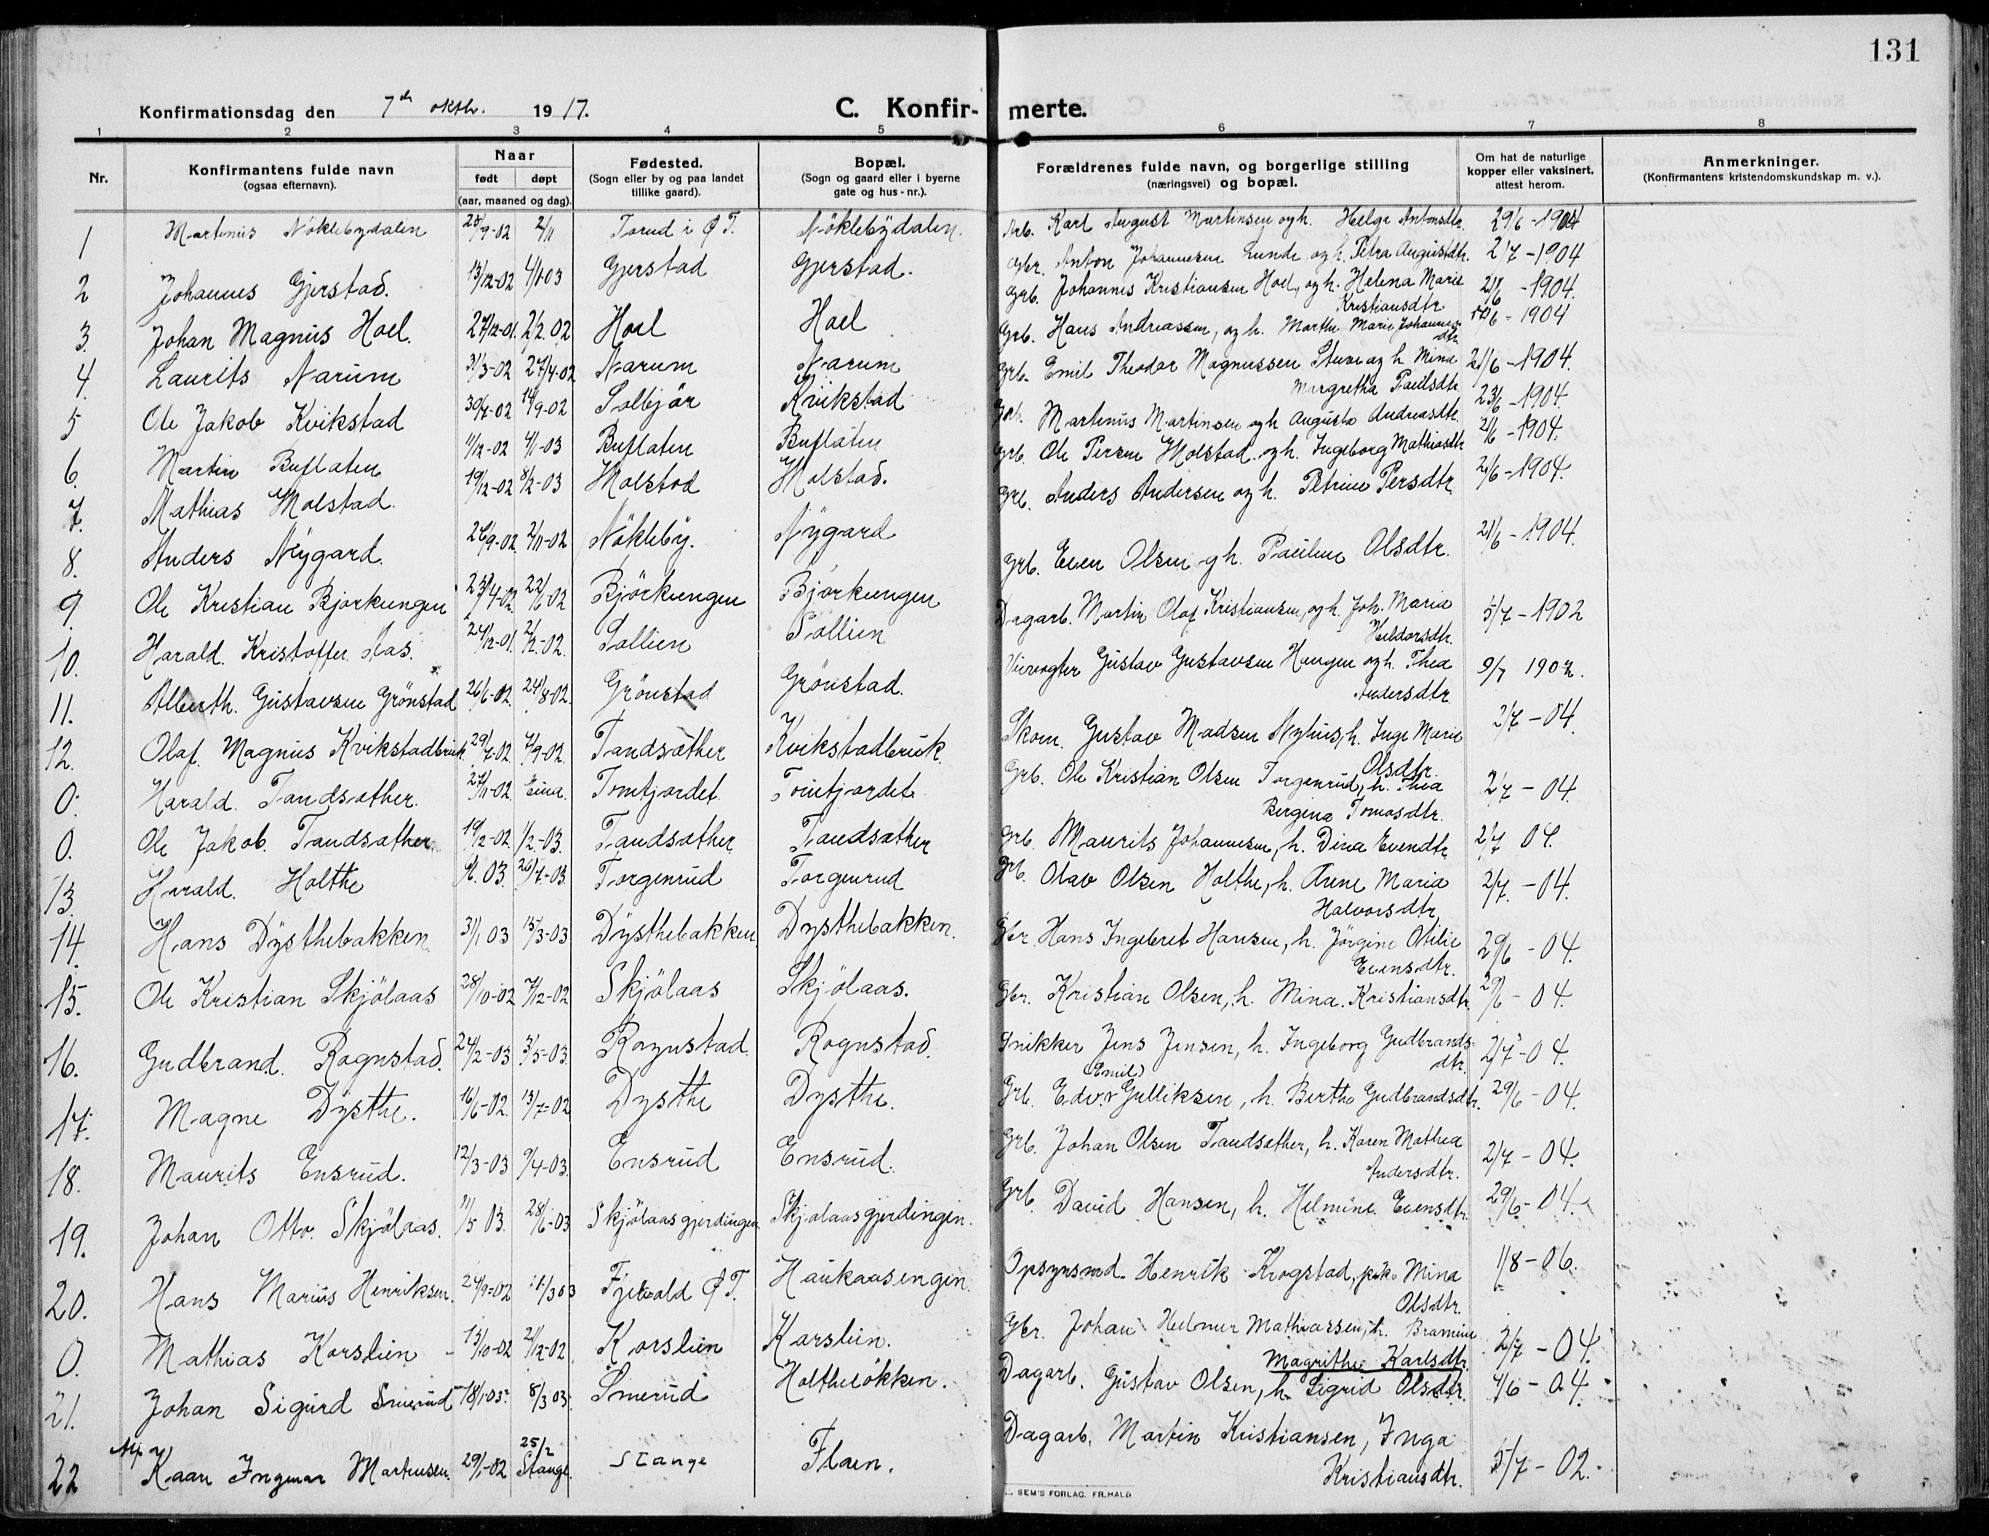 131
Konfirmationsdag den 7de oktbr. 1917.
C. Konfir- merte.
1 2 3 4 5 6 7 8
Nr.
Konfirmantens fulde navn
(ogsaa efternavn).
Naar
født døpt
(aar, maaned og dag).
Fødested.
(Sogn eller by og paa landet
tillike gaard).
Bopæl.
(Sogn og gaard eller i byerne
gate og hus-nr.).
Forældrenes fulde navn, og borgerlige stilling
(næringsvei) og bopæl.
Om hat de naturlige
kopper eller vaksinert,
attest herom.
Anmerkninger.
(Konfirmantens kristendomskundskap m. v.).
1 Martinus Nöklebydalen 2/11 Torud i Ø T. Nöklebydalen. Arb. Karl August Martinsen og h. Helga Antonsdtr. 29/6 - 1904
2 Johannes Gjerstad. 13/12-02 4/1-03 Gjerstad Gjerstad. Gbr. Anton Johannesen Lunde og h. Petra Augustdtr. 2/7 - 1904
3. Johan Magnus Hoel. 27/12-01. 2/2.02 Hoel Hoel Grb. Johannes Kristiansen Hoel, og h. Helena Marie
Kristiansdtr. - 1904.
4. Laurits Narum 31/3-02 27/4-02 Narum Narum Grb. Hans Andreassen, og h. Marthe Marie Johannes-
dtr. - 1904
5 Ole Jakob Kvikstad 14/9-02 Solbjör Kvikstad Grb. Emil Theodor Magnussen Stuve og h. Mina
Margretha Paulsdtr. 21/6 - 1904.
6. Martin Buflaten 11/12-02 4/1-03 Buflaten Buflaten Grb. Martinus Martinsen og h. Augusta Andreasdtr. 23/6 - 1904
7. Mathias Molstad. 19/12-02 8/2-03 Molstad Molstad. Grb. Ole Persen Molstad og h. Ingeborg Mathiasdtr 21/6 - 1904.
8. Anders Nÿgard. 2/11-02 Nökleby. Nÿgard Grb. Anders Andersen og h. Petrine Persdtr. 21/6 - 1904.
9. Ole Kristian Bjorkengen 22/6-02 Björkengen Björkengen Grb. Even Olsen og h. Pauline Olsdtr. 21/6 - 1904.
10. Harald Kristoffer Aas. 24/12-01. 2/2.-02. Sollien Sollien Dagarb. Martin Olaf Kristiansen, og h. Joh. Maria
Heldorsdtr. 5/7 - 1902
11. Alberth. Gustavsen Grönstad 26/6-02. 24/8-02. Grönstad Grönstad. Veivogter Gustav Gustavsen Haugen og h. Thea
Andersdtr. 9/7 1902.
12. Olaf Magnus Kvikstadbruk 29/7-02. 7/9-02. Tandsæther Kvikstadbruk. Skom. Gustav Madsen Nyhus, h. Inge Marie
Olsdtr. 2/7 - 04.
0. Harald. Tandsæther. 27/11-02. Eina. Tomtjordet Tomtjordet Grb. Ole Kristian Olsen Torgenrud, h. Thea
Bergine Tomasdtr. 2/7 - 04.
0. Ole Jakob. Tandsæther. 19/12-02 1/2-03. Tandsæther Tandsæther Grb. Maurits Johannesen, h. Dina Evendtr. 2/7 04.
13. Harald. Holthe 26/4-03. Torgenrud Torgenrud Grb. Olav Olsen Holthe, h. Arene Maria
Halvorsdtr. 2/7. - 04.
14. Hans Dÿsthebakken. 3/1 03 15/3-03 Dÿsthebakken Dÿsthebakken. Gbr. Hans Ingebret Hansen, h. Jörgine Otilie
Evensdtr. 29/6 - 04.
15. Ole Kristian Skjölaas 28/10-02 7/12-02 Skjölaas Skjölaas. Gbr. Kristian Olsen, h. Mina. Kristiansdtr. 29/6 - 04.
16. Gudbrand. Rognstad. 24/2-03 3/5-03 Rognstad Rognstad. Snikker Jens Jensen, h. Ingeborg Gudbrands-
dtr. 2/7 - 04.
17. Magne Dÿsthe. 16/6-02. 13/7-02 Dysthe Dysthe. Grb. Edv. (Emil) Gulliksen, h. Berthe Gudbrandsdtr. 29/6 - 04.
18. Maurits Ensrud. 12/3-03 9/4-03. Ensrud Ensrud. Grb. Johan Olsen Tandsæther, h. Karen Mathea
Andersdtr. 2/7 - 04.
19. Johan Otto. Skjölaas. 11/5 03. 28/6-03 Skjölaasgjerdingen Skjolaasgjerdingen. Grb. David Hansen, h. Helmine Evensdtr. 29/6 - 04.
20. Hans Marius Henriksen. 24/9-02 Fjelvold Ø T. Haukaasengen. Opsynsmd. Henrik Krogstad, Mina
Olsdtr. 1/8 - 06.
0. Mathias Korslien 13/10-02 21/12-02. Korslien Korslien. Gbr. Johan Helmer Mathiassen, h. Bramine
Magrithe Karlsdtr. 2/7 - 04.
21. Johan Sigurd Smerud 18/1-03 8/3 03. Smerud Holthelökken. Dagarb. Gustav Olsen, h. Sigrid Olsdtr. 4/6 - 04.
22 Kaan Ingmar Martinsen. 29/1-02 25/2 Stange. Stange Flaen. Dagarb. Martin Kristiansen, Inga
Kristiansdtr. 5/7 - 02.
SEM'S FORLAG. FR. HALD